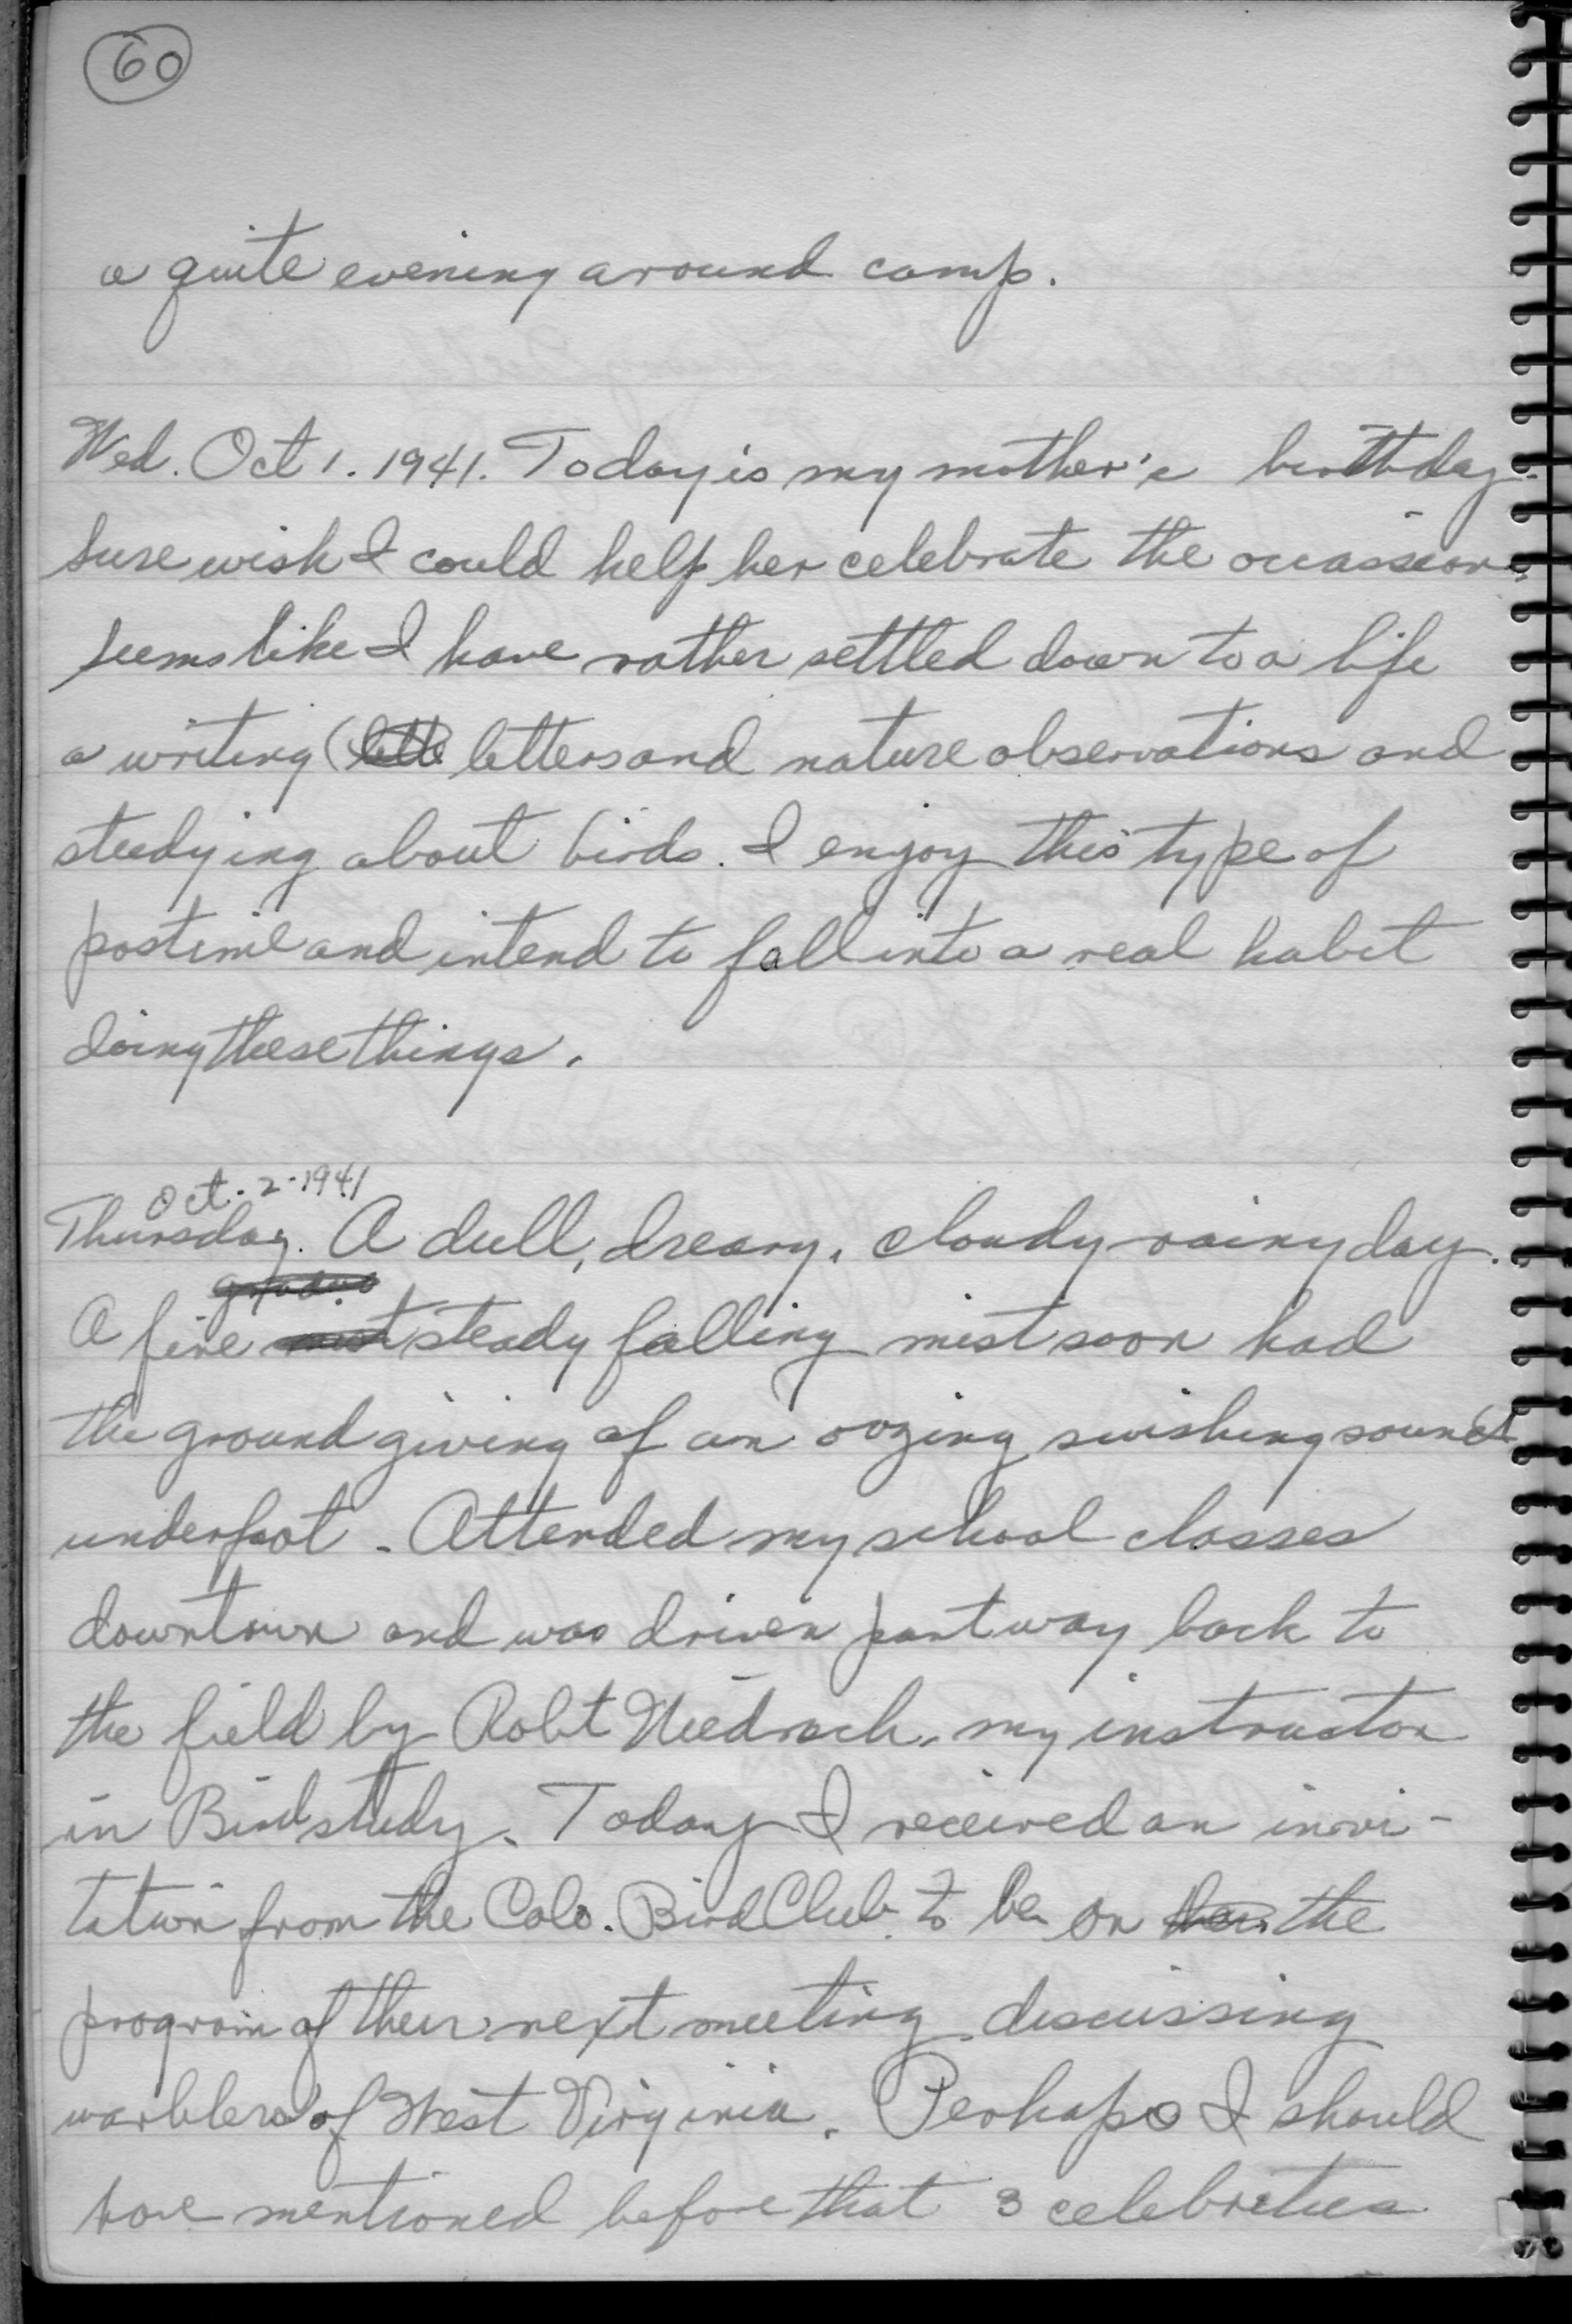 60
a quite evening around camp.
Wed. Oct 1. 1941. Today is my mother's birthday.
sure wish I could help her celebrate the occassion.
seems like I have rather settled down to a life
a writing letters and nature observations and
studying about birds. I enjoy this type of
pastime and intend to fall into a real habit
doing these things.
Oct. 2. 1941
Thursday. A dull, dreary, cloudy rainy day.
A fine steady falling mist soon had
the ground giving of an oozing swishing sound
underfoot. Attended my school classes
downtown and was driven part way back to
the field by Robt Niedrach, my instructor
in Bird study. Today I received an invi-
tation from the Colo. Bird Club to be on the
program of their next meeting discussing
warblers of West Virginia. Perhaps I should
have mentioned before that 3 celebrities